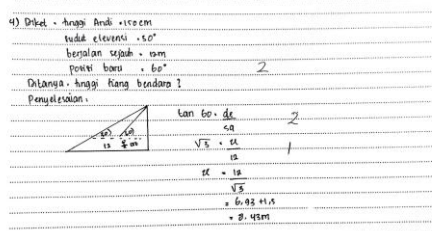 4) Diket • tinggi Andi • 150 cm
sudut elevensi • 50°
berjalan sejauh • 12m
posisi baru • 60°
2
Ditanya • tinggi tiang bendera ?
Penyelesaian :
tan 60 • de
sa
2
√3 •
12
1
12
• 12
√3
• 6.93 + 1,5
• 8.43m